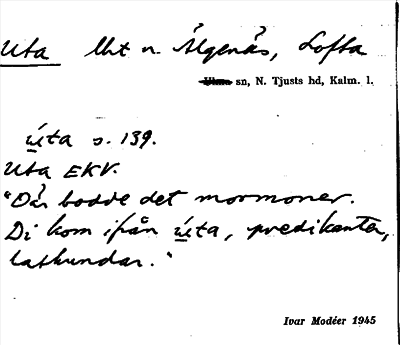 Uta lht n. Älgenäs, Lofta
sn, N. Tjusts hd, Kalm. l.
ẁta s. 139.
Uta EKV.
"Där bodde det mormoner.
Di kom ifrån ẁta, predikanter,
laskundar."
Ivar Modéer 1945